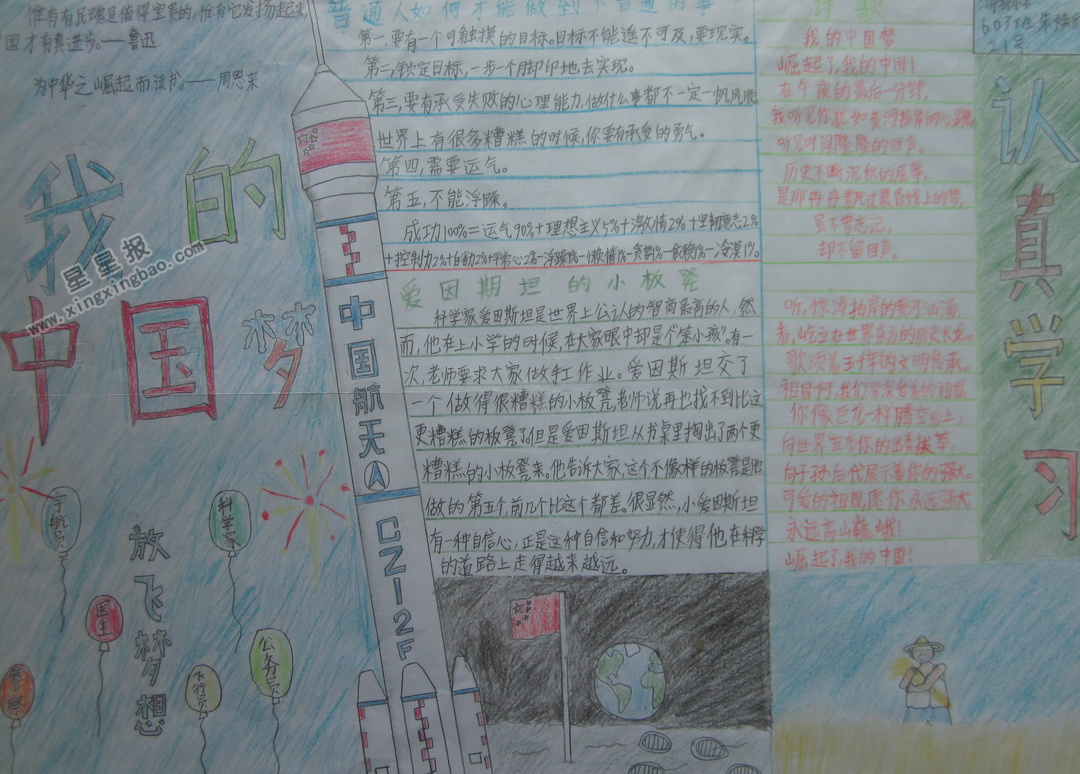 惟有有民魂是值得宝贵的,惟有它发扬起来,
中国才有真进步。——鲁迅
为中华之崛起而读书。——周恩来
我的
中国梦
星星报
www.xingxingbao.com
宇航员
科学家
医生
公务员
飞行员
放飞梦想
中国航天
CZ12F
普通人如何才能做到不普通的事
第一,要有一个可触摸的目标。目标不能遥不可及,要现实。
第二,锁定目标,一步一个脚印地去实现。
第三,要有承受失败的心理能力,做什么事都不一定一帆风顺
世界上有很多糟糕的时候,你要有承受的勇气。
第四,需要运气。
第五,不能浮躁。
成功100%=运气90%+理想主义5%+激情2%+坚韧意志2%
爱因期坦的小板凳
科学家爱因斯坦是世界上公认的智商最高的人,然
而,他在上小学的时候,在大家眼中却是个“笨小孩”。有一
次,老师要求大家做手工作业。爱因斯坦交了
一个做得很糟糕的小板凳,老师说再也找不到比这
更糟糕的板凳了。但是爱因斯坦从书桌里掏出了两个更
糟糕的小板凳来。他告诉大家,这个不像样的板凳是他
做的第五个,前几个比这个都差。很显然,小爱因斯坦
有一种自信心,正是这种自信和努力,才使得他在科学
的道路上走得越来越远。
诗歌
我的中国梦
崛起了,我的中国!
在午夜的最后一分钟,
我听见你犹如黄河拍岸的心跳
听见时间隆隆的回声。
历史不断沉积的厚重,
是那冉冉飘过最白线上的梦,
虽不曾忘记,
却不留回声。
听,惊涛拍岸的黄河
看,屹立在世界东方的历史长龙。
歌颂着五千年的文明传承。
祖国啊,我们深深爱着的祖国
你像巨龙一样腾空而上,
向世界宣布你的出类拔萃,
向子孙后代展示着你的强大。
可爱的祖国,愿你永远强大
永远高山巍峨!
崛起了,我的中国!
603班
21号
认真学习